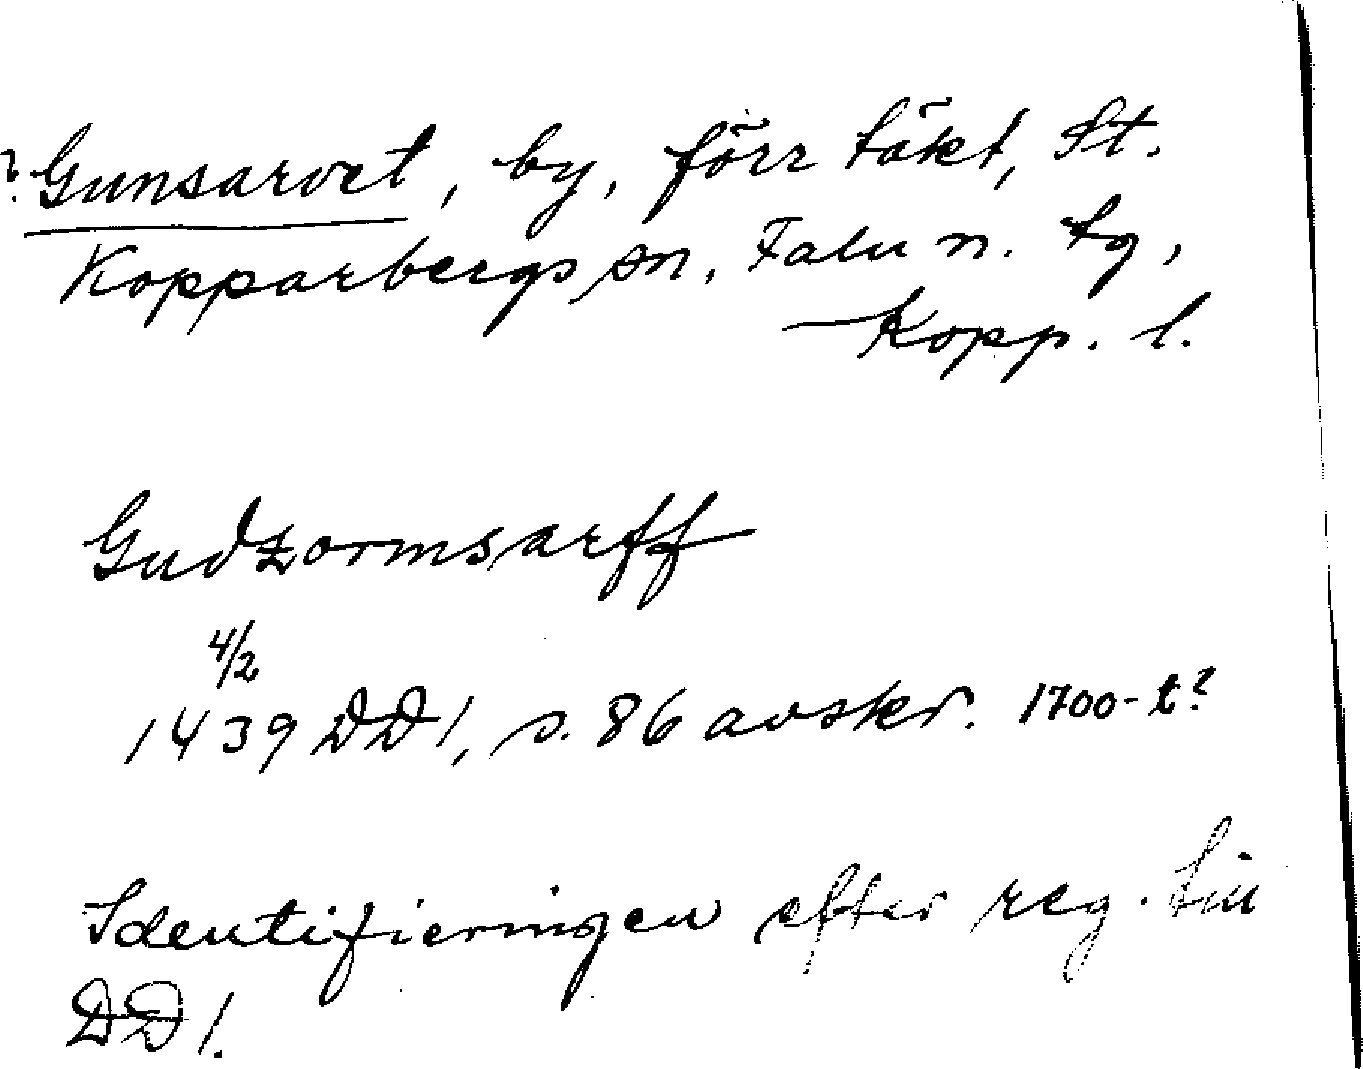 ? Gunsarvet, by, förr täkt, St.
Kopparbergs sn, Falu n. tg,
Kopp. l.
Gudzormsarff
4/2
1439 DD 1, s. 86 avskr. 1700-t?
Identifieringen efter reg. till
DD 1.